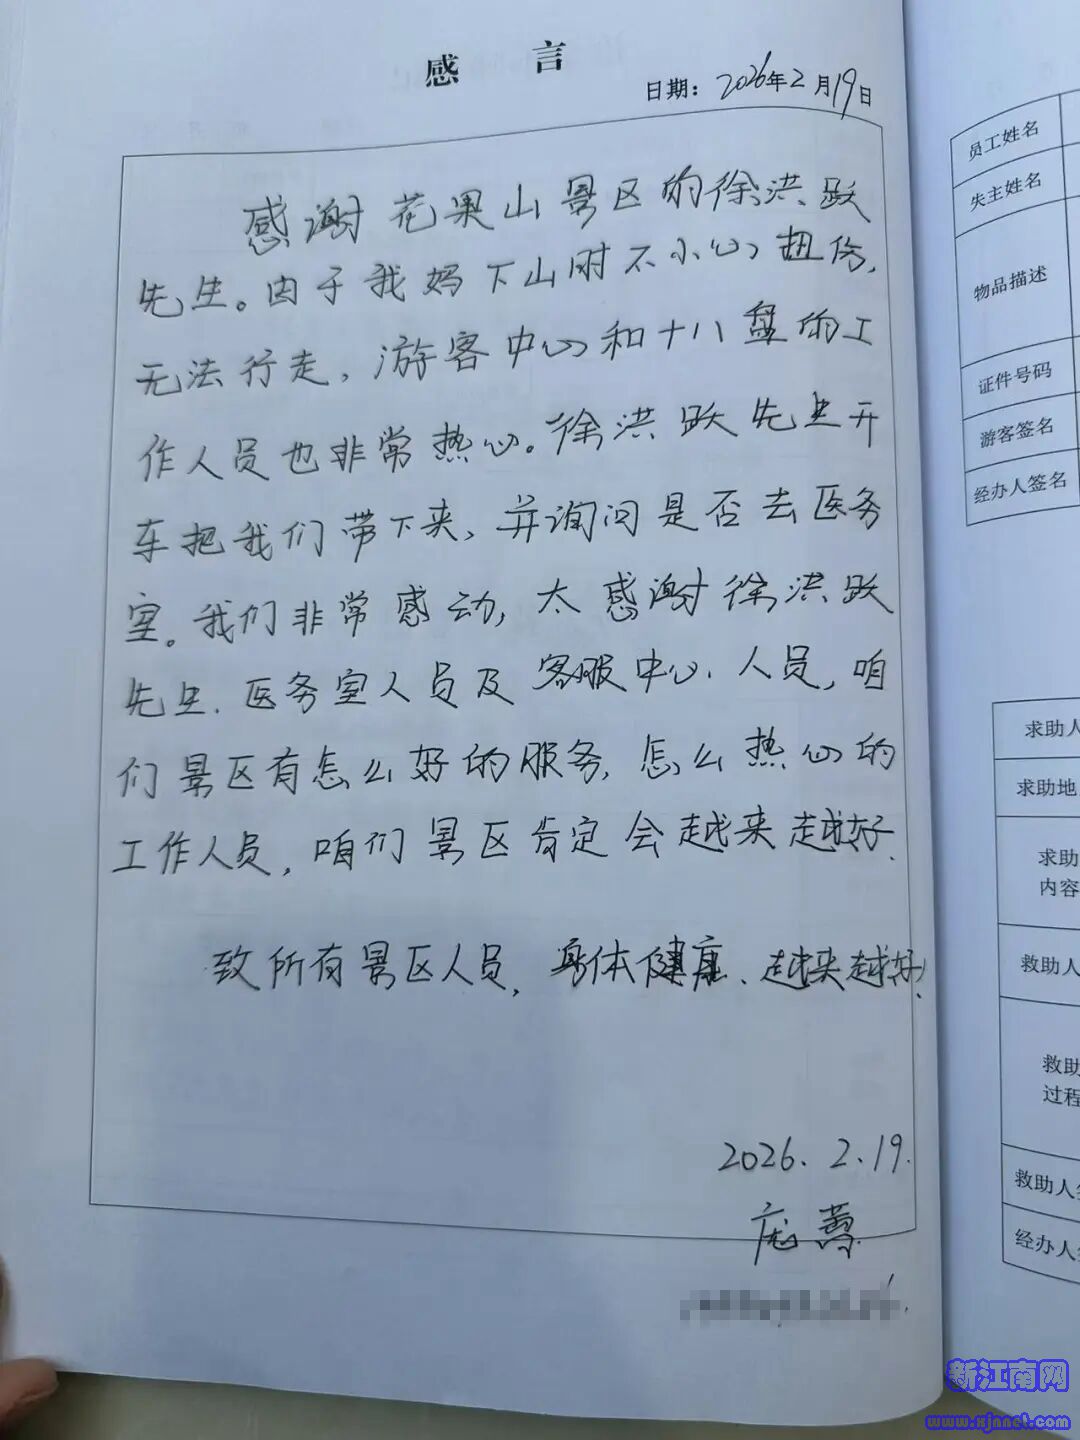 感言
日期：2026年2月19日
感谢花果山景区的徐洪跃
先生。由于我妈下山时不小心扭伤，
无法行走，游客中心和十八盘的工
作人员也非常热心。徐洪跃先生开
车把我们带下来，并询问是否去医务
室。我们非常感动，太感谢徐洪跃
先生、医务室人员及客服中心人员，咱
们景区有怎么好的服务，怎么热心的
工作人员，咱们景区肯定会越来越好.
致所有景区人员，身体健康、越来越好！
2026.2.19.
员工姓名
失主姓名
物品描述
证件号码
游客签名
经办人签名
求助人
求助地
求助
内容
救助人
救助
过程
救助人
经办人
新江南网
www.xjnnet.com